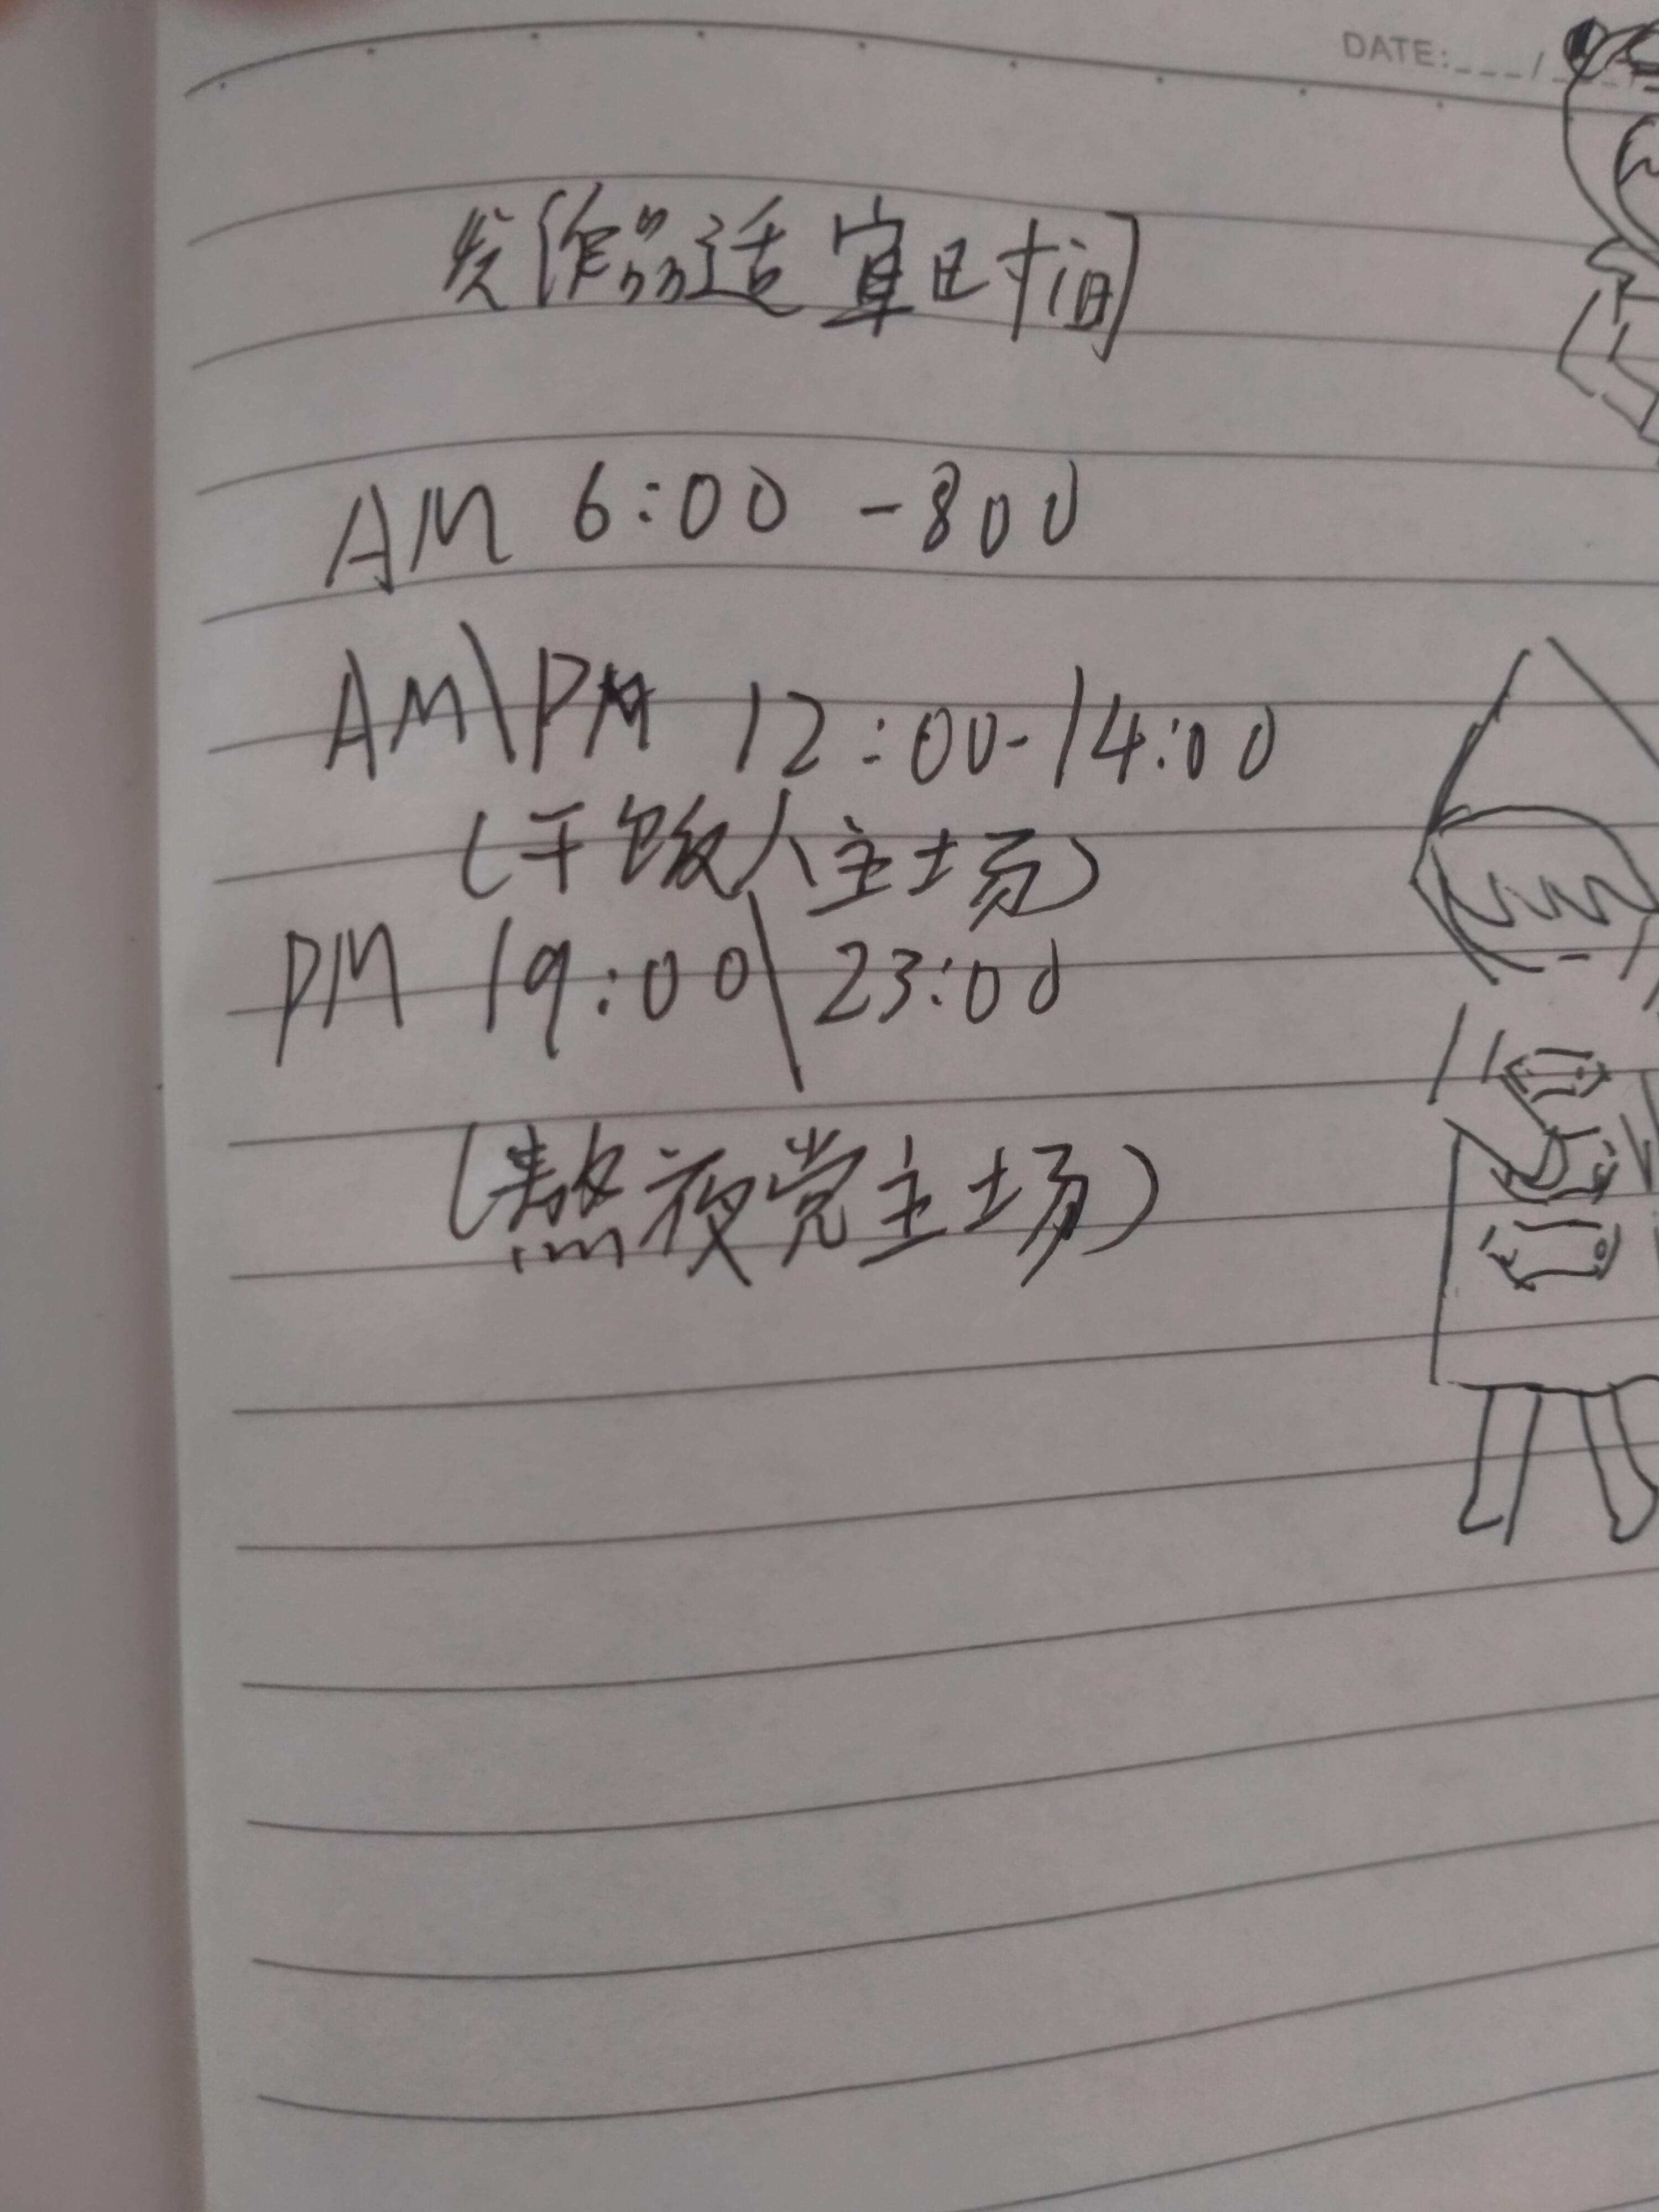 DATE:___/___
发作品适宜时间
AM 6:00 -800
AM\PM 12:00-14:00
(干饭人主场)
PM 19:00\23:00
(熬夜党主场)